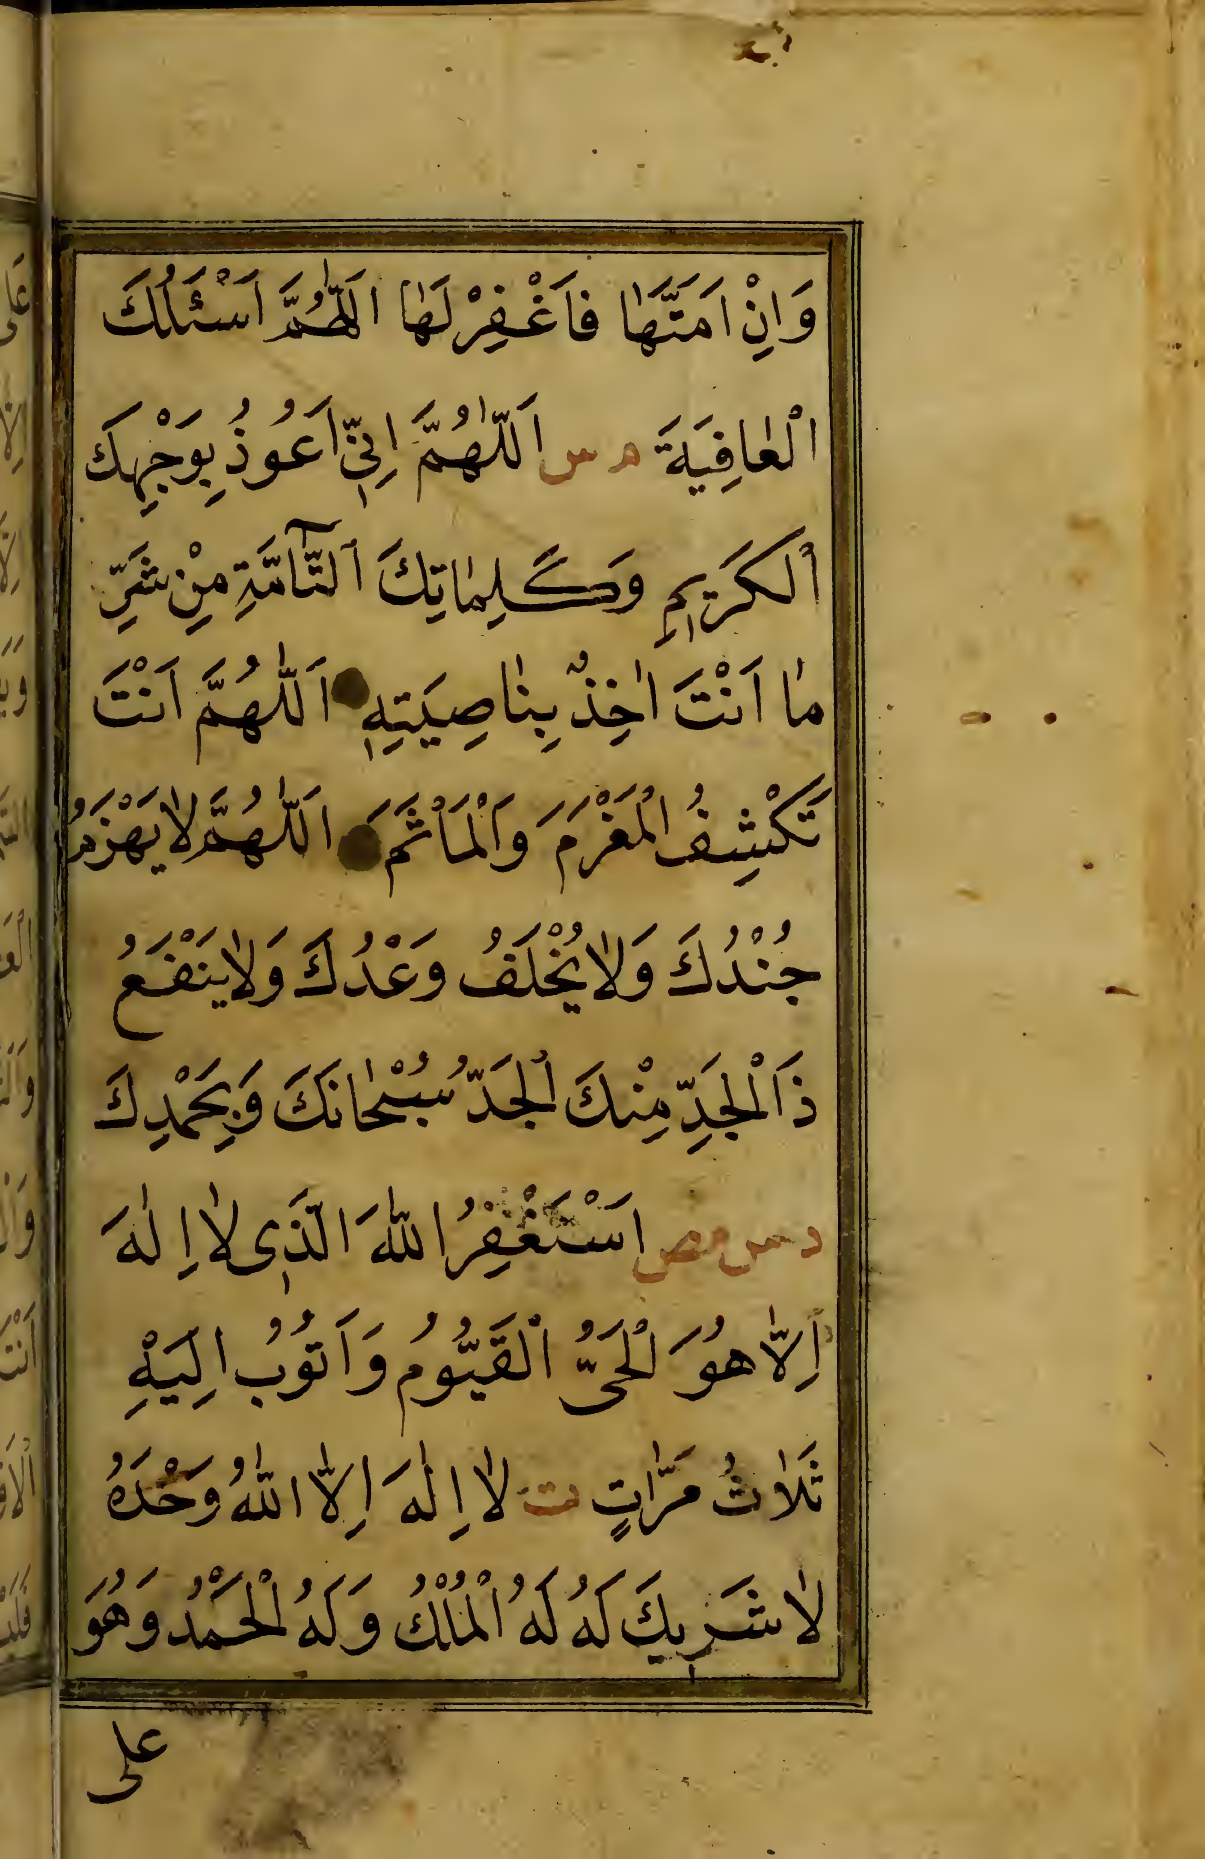 وَاِنْ اَمَتَّهٰا فَاغْفِرْ لَهٰا اَللّٰهُمَّ اَسْئَلُكَ
الْعٰافِيَةَ م س اَللّٰهُمَّ اِنّٖى اَعُوذُ بِوَجْهِكَ
الْكَرٖيمِ وَكَلِمٰاتِكَ التَّآمَّةِ مِنْ شَرِّ
مٰا اَنْتَ اٰخِذٌ بِنٰاصِيَتِهٖ اَللّٰهُمَّ اَنْتَ
تَكْشِفُ الْمَغْرَمَ وَالْمَاْثَمَ اَللّٰهُمَّ لٰا يَهْزَمُ
جُنْدُكَ وَلٰا يُخْلَفُ وَعْدُكَ وَلٰا يَنْفَعُ
ذَا الْجَدِّ مِنْكَ الْجَدُّ سُبْحٰانَكَ وَبِحَمْدِكَ
د س مص اَسْتَغْفِرُ اللّٰهَ الَّذٖى لٰا اِلٰهَ
اِلّٰا هُوَ الْحَىُّ الْقَيُّومُ وَاَتُوبُ اِلَيْهِ
ثَلٰاثُ مَرّٰاتٍ ت لٰا اِلٰهَ اِلّٰا اللّٰهُ وَحْدَهُ
لٰا شَرٖيكَ لَهُ لَهُ الْمُلْكُ وَلَهُ الْحَمْدُ وَهُوَ
على